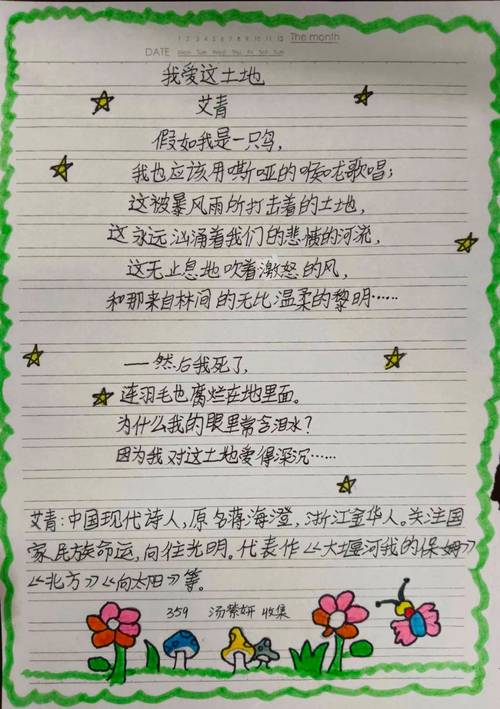 1 2 3 4 5 6 7 8 9 10 11 12 The month
DATE Mon Tue Wed Thu Fri Sat Sun
我爱这土地
艾青
假如我是一只鸟,
我也应该用嘶哑的喉咙歌唱;
这被暴风雨所打击着的土地,
这永远汹涌着我们的悲愤的河流,
这无止息地吹着激怒的风,
和那来自林间的无比温柔的黎明……
—然后我死了,
连羽毛也腐烂在地里面。
为什么我的眼里常含泪水?
因为我对这土地爱得深沉……
艾青:中国现代诗人,原名蒋海澄,浙江金华人。关注国
家民族命运,向往光明。代表作《大堰河我的保姆》
《北方》《向太阳》等。
359 汤紫妍 收集